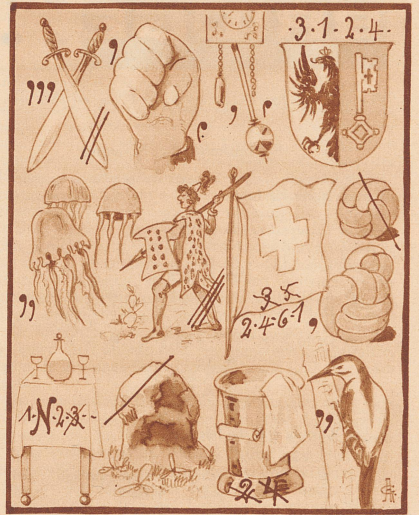 ·3·1·2·4·
,
,,,
, ,
,
,,
3 5
2·4·6·1
,
1·N·2·3·
,,